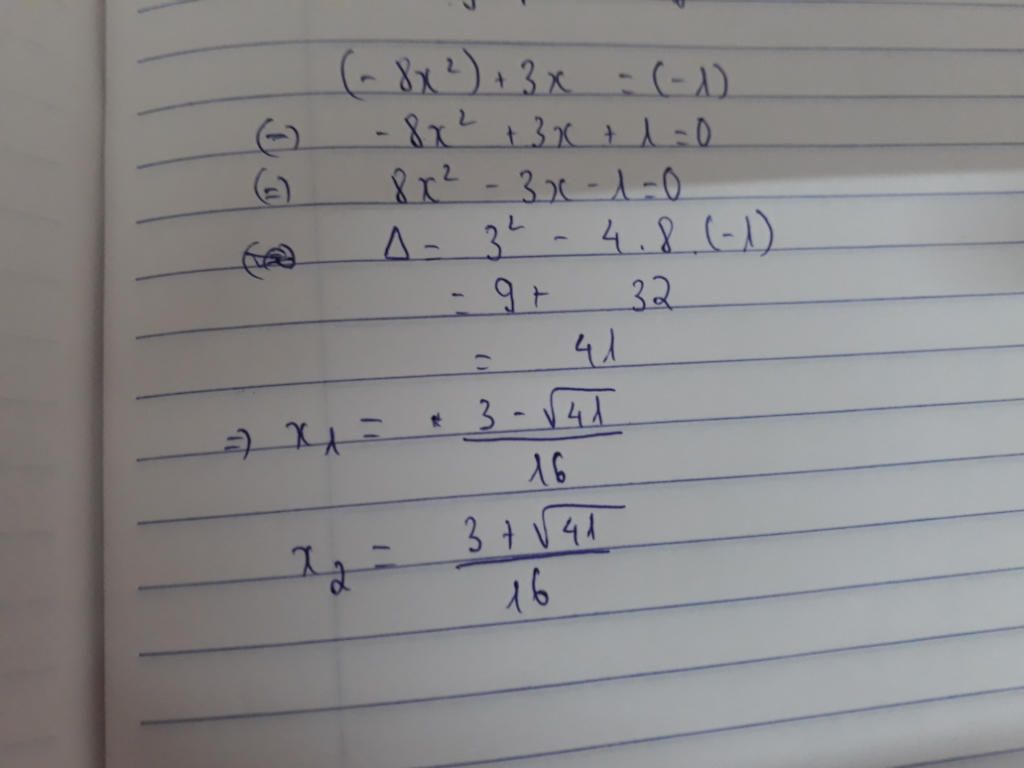 (-8x²) + 3x = (-1)
(=) -8x² + 3x + 1 = 0
(=) 8x² - 3x - 1 = 0
Δ = 3² - 4.8.(-1)
= 9 + 32
= 41
=> x₁ = 3 - √41 / 16
x₂ = 3 + √41 / 16